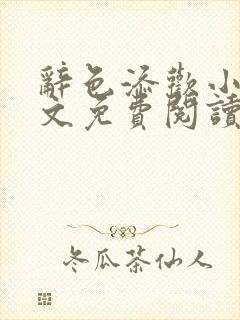 辭色添歡小
文免費閱讀
冬瓜茶仙人